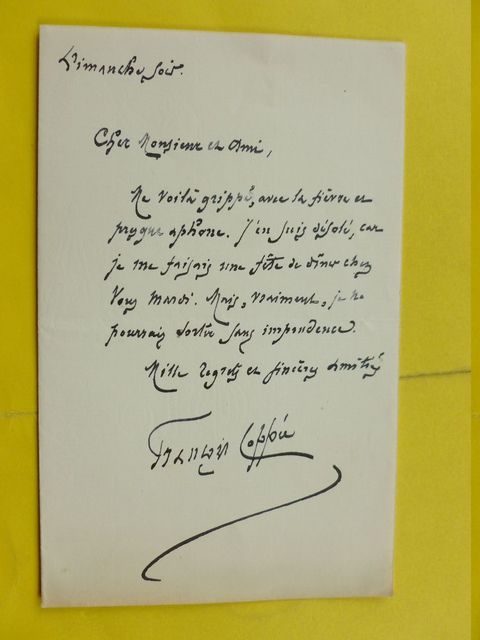 Dimanche soir.
Cher Monsieur et Ami,
Me voilà grippé, avec la fièvre et
presque aphone. J'en suis désolé, car
je me faisais une fête de dîner chez
Vous Mardi. Mais, vraiment, je ne
pourrais sortir sans imprudence.
Mille regrets et sincères amitiés
François Coppée